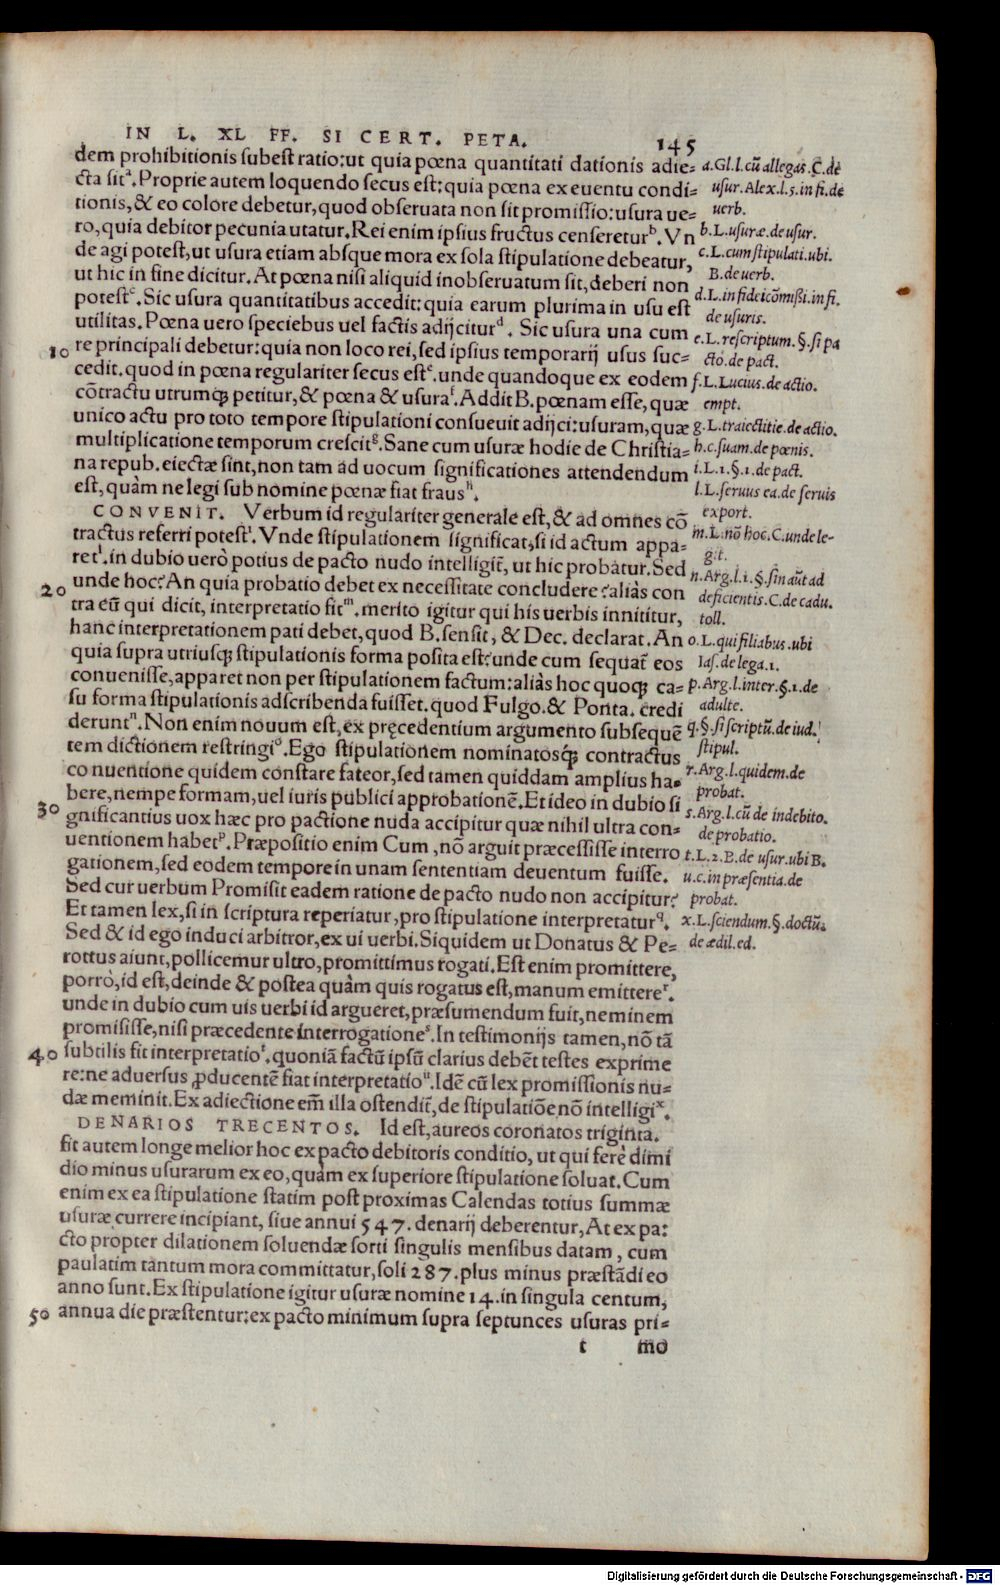 IN L. XL FF. SI CERT. PETA. 145
dem prohibitionis subest ratio: ut quia pœna quantitati dationis adie-
cta sitᵃ. Proprie autem loquendo secus est: quia pœna ex euentu condi-
tionis, & eo colore debetur, quod obseruata non sit promissio: usura ue-
ro, quia debitor pecunia utatur. Rei enim ipsius fructus censereturᵇ. Vn
de agi potest, ut usura etiam absque mora ex sola stipulatione debeatur,
ut hic in fine dicitur. At pœna nisi aliquid inobseruatum sit, deberi non
potestᶜ. Sic usura quantitatibus accedit: quia earum plurima in usu est
utilitas. Pœna uero speciebus uel factis adijciturᵈ. Sic usura una cum
10 re principali debetur: quia non loco rei, sed ipsius temporarij usus suc-
cedit. quod in pœna regulariter secus estᵉ. unde quandoque ex eodem
cōtractu utrumq; petitur, & pœna & usuraᶠ. Addit B. pœnam esse, quæ
unico actu pro toto tempore stipulationi consueuit adijci: usuram, quæ
multiplicatione temporum crescitᵍ. Sane cum usuræ hodie de Christia-
na repub. eiectæ sint, non tam ad uocum significationes attendendum
est, quàm ne legi sub nomine pœnæ fiat frausʰ.
CONVENIT. Verbum id regulariter generale est, & ad omnes cō
tractus referri potestⁱ. Vnde stipulationem significat, si id actum appa-
retˡ. in dubio uerò potius de pacto nudo intelligit̃, ut hic probatur. Sed
20 unde hoc? An quia probatio debet ex necessitate concludere? aliàs con
tra eũ qui dicit, interpretatio fitᵐ. merito igitur qui his uerbis innititur,
hanc interpretationem pati debet, quod B. sensit, & Dec. declarat. An
quia supra utriusq; stipulationis forma posita est? unde cum sequat̃ eos
conuenisse, apparet non per stipulationem factum: aliàs hoc quoq; ca-
su forma stipulationis adscribenda fuisset. quod Fulgo. & Ponta. credi
deruntⁿ. Non enim nouum est, ex pręcedentium argumento subsequẽ
tem dictionem restringiᵒ. Ego stipulationem nominatosq́; contractus
conuentione quidem constare fateor, sed tamen quiddam amplius ha-
bere, nempe formam, uel iuris publici approbationẽ. Et ideo in dubio si
30 gnificantius uox hæc pro pactione nuda accipitur quæ nihil ultra con-
uentionem habetᵖ. Præpositio enim Cum, nō arguit præcessisse interro
gationem, sed eodem tempore in unam sententiam deuentum fuisse.
Sed cur uerbum Promisit eadem ratione de pacto nudo non accipitur?
Et tamen lex, si in scriptura reperiatur, pro stipulatione interpretatur^q.
Sed & id ego induci arbitror, ex ui uerbi. Siquidem ut Donatus & Pe-
rottus aiunt, pollicemur ultro, promittimus rogati. Est enim promittere,
porrò, id est, deinde & postea quàm quis rogatus est, manum emittereʳ.
unde in dubio cum uis uerbi id argueret, præsumendum fuit, neminem
promisisse, nisi præcedente interrogationeˢ. In testimonijs tamen, nō tā
40 subtilis fit interpretatioᵗ. quoniā factũ ipsũ clarius debẽt testes exprime
re: ne aduersus ꝓducentẽ fiat interpretatioᵘ. Idẽ cũ lex promissionis nu-
dæ meminit. Ex adiectione em̃ illa ostendit̃, de stipulatiōe nō intelligiˣ.
DENARIOS TRECENTOS. Id est, aureos coronatos triginta.
fit autem longe melior hoc ex pacto debitoris conditio, ut qui ferè dimi
dio minus usurarum ex eo, quàm ex superiore stipulatione soluat. Cum
enim ex ea stipulatione statim post proximas Calendas totius summæ
usuræ currere incipiant, siue annui 547. denarij deberentur, At ex pa-
cto propter dilationem soluendæ sorti singulis mensibus datam, cum
paulatim tantum mora committatur, soli 287. plus minus præstādi eo
anno sunt. Ex stipulatione igitur usuræ nomine 14. in singula centum,
50 annua die præstentur: ex pacto minimum supra septunces usuras pri-
t mo
a. Gl. l. cũ allegas. C. de
usur. Alex. l. 5. in fi. de
uerb.
b. L. usuræ. de usur.
c. L. cum stipulati. ubi.
B. de uerb.
d. L. in fideicōmissi. in fi.
de usuris.
e. L. rescriptum. §. si pa
cto. de pact.
f. L. Lucius. de actio.
empt.
g. L. traiectitie. de actio.
h. c. suam. de pœnis.
i. L. 1. §. 1. de pact.
l. L. seruus ea. de seruis
export.
m. L. nō hoc. C. unde le-
git.
n. Arg. l. 1. §. sin aũt ad
deficientis. C. de cadu.
toll.
o. L. qui filiabus. ubi
Ias. de lega. 1.
p. Arg. l. inter. §. 1. de
adulte.
q. §. si scriptũ. de iud.
stipul.
r. Arg. l. quidem. de
probat.
s. Arg. l. cũ de indebito.
de probatio.
t. L. 2. B. de usur. ubi B.
u. c. in præsentia. de
probat.
x. L. sciendum. §. doctũ.
de ædil. ed.
Digitalisierung gefördert durch die Deutsche Forschungsgemeinschaft - DFG